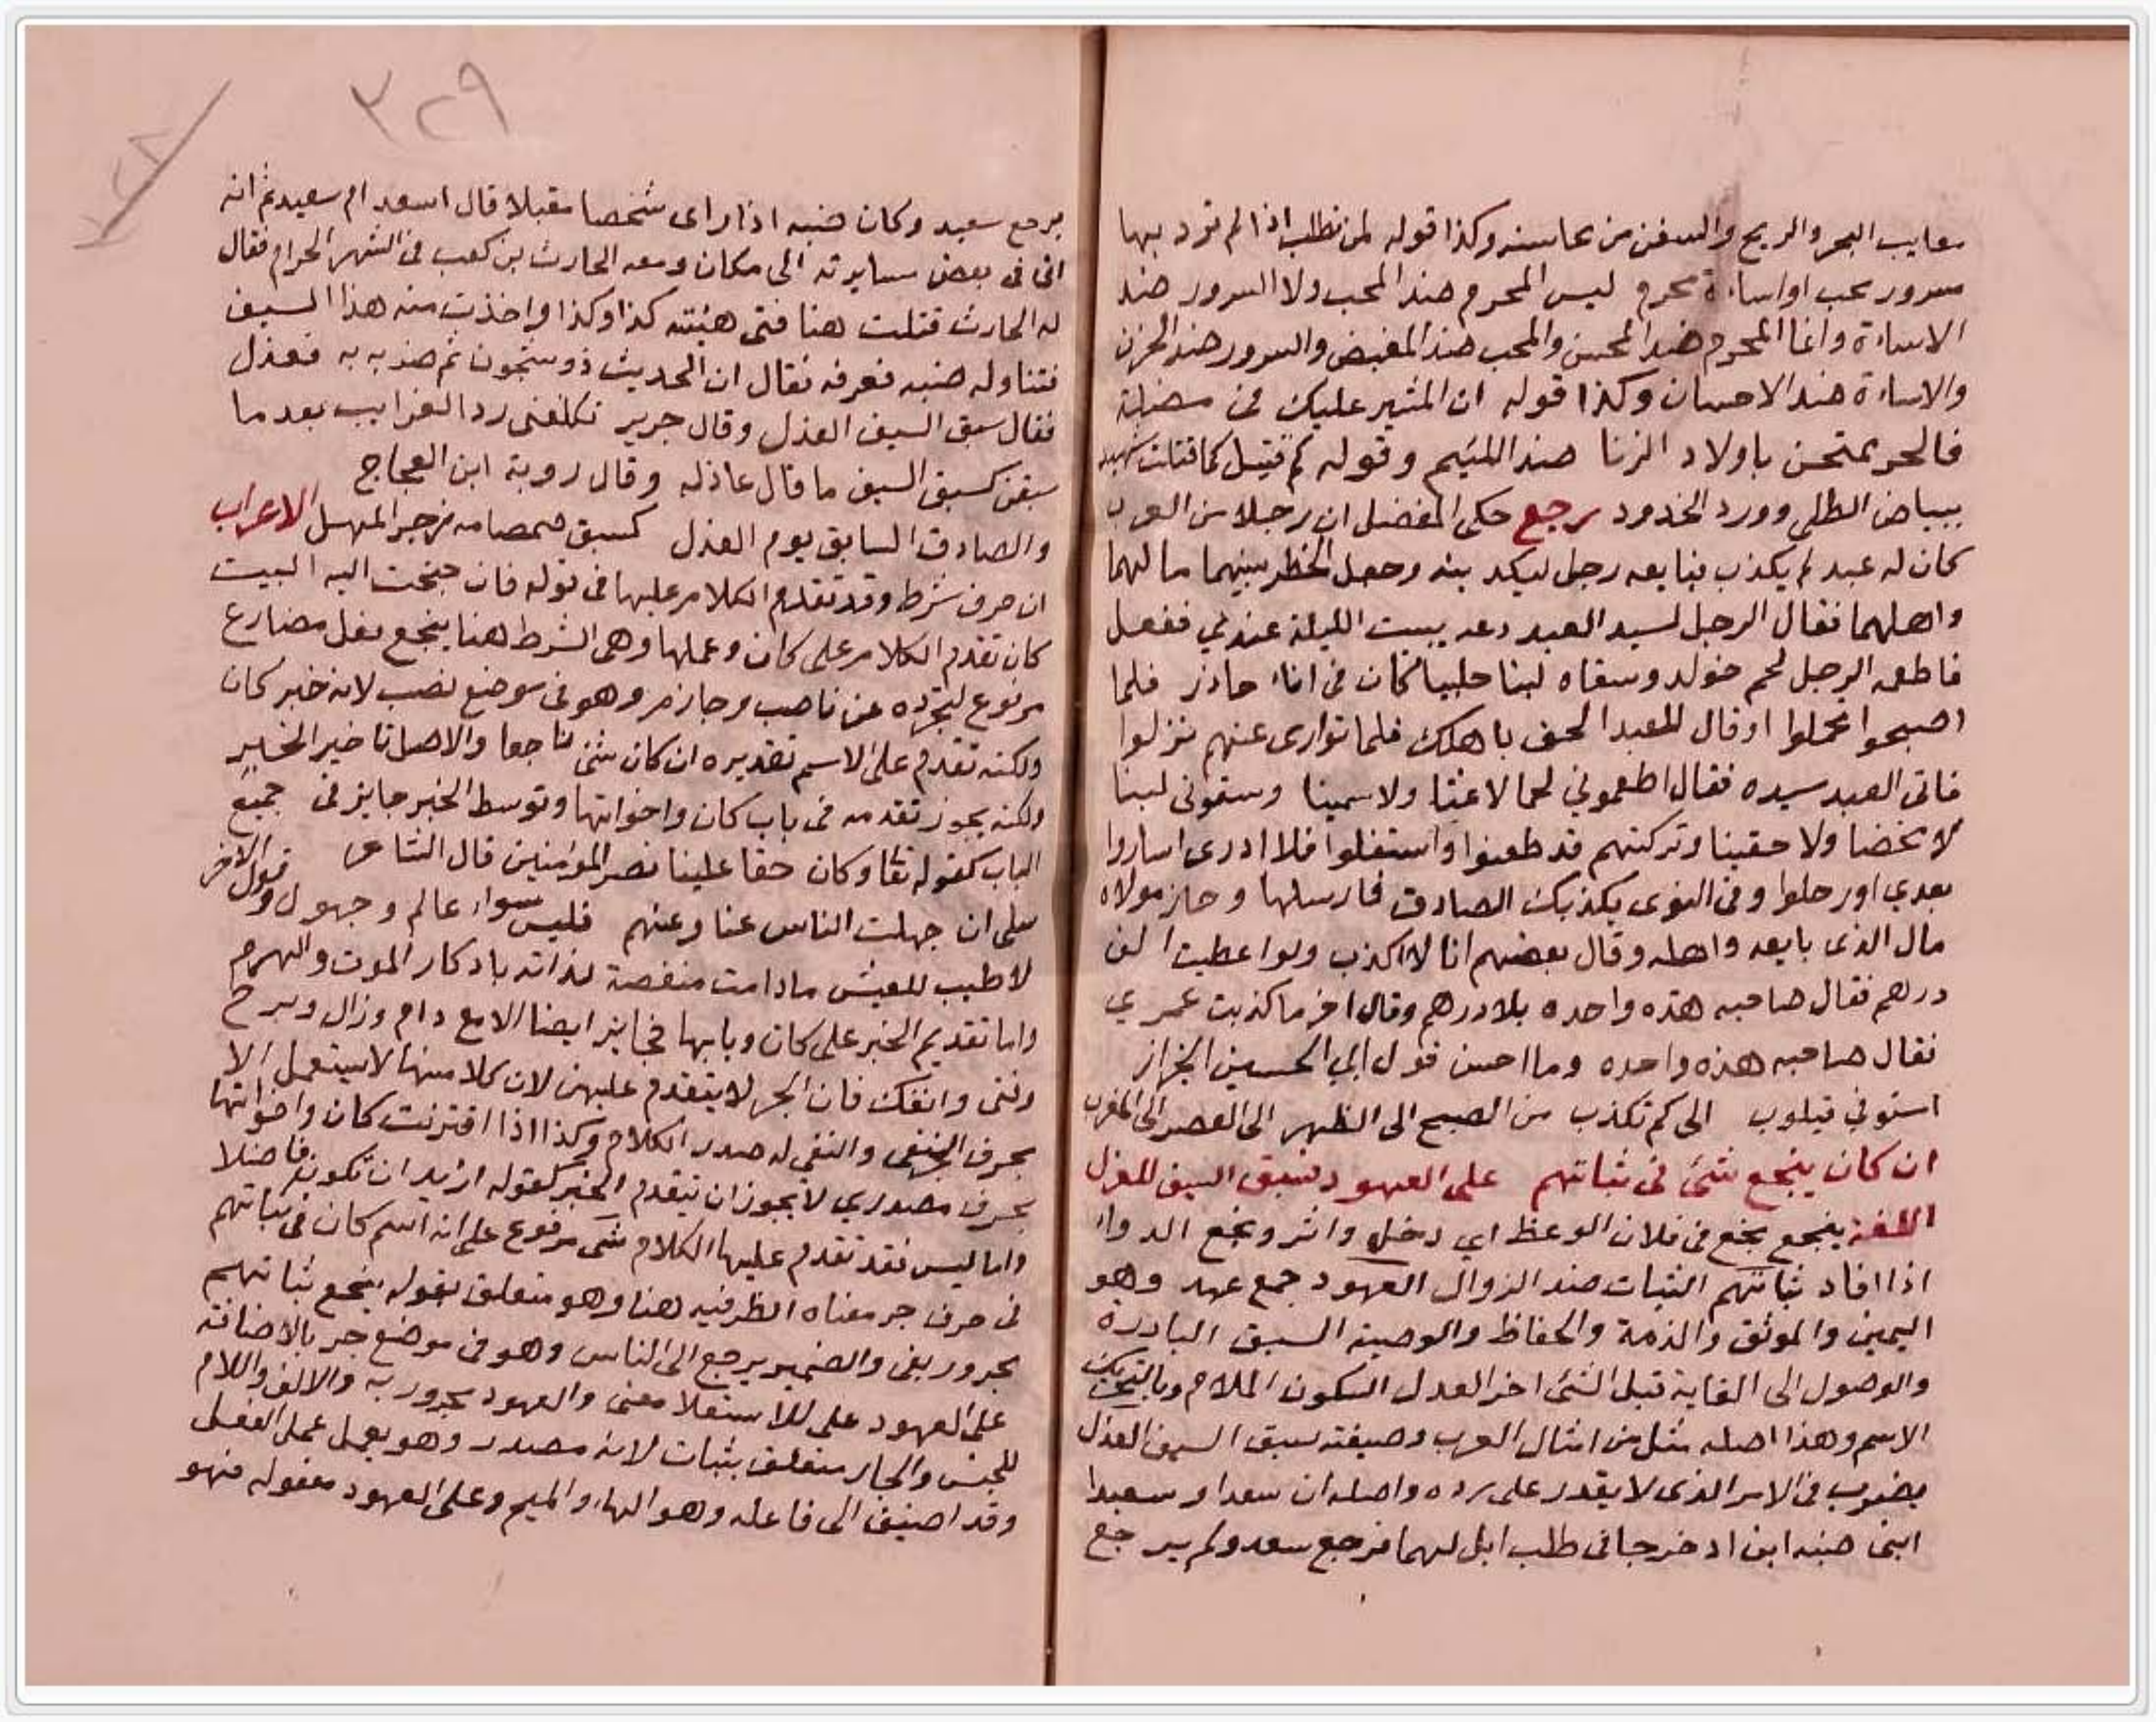 معايب البحر والريح والسفن من محاسنه وكذا قوله لمن تطلب اذا لم ترد بها
سرور محب او اساءة مجرم ليس المجرم ضد المحب ولا السرور ضد
الاساءة وانما المجرم ضد المحسن والمحب ضد المبغض والسرور ضد الحزن
والاساءة ضد الاحسان وكذا قوله ان المشير عليك فى
فالحر ممتحن باولاد الزنا ضد اللئيم وقوله كم قتيل كما قتلت شهيد
ببياض الطلى وورد الخدود رجع حكى المفضل ان رجلا من العرب
كان له عبد لم يكذب فبايعه رجل ليكذبنه وجعل الخطر بينهما مالهما
واهلهما فقال الرجل لسيد العبد دعه يبيت الليلة عندي ففعل
فاطعمه الرجل لحم حوار وسقاه لبنا حليبا كان فى اناء حاذر فلما
اصبحوا تحملوا وقال للعبد الحق باهلك فلما توارى عنهم نزلوا
فاتى العبد سيده فقال اطعموني لحما لا غثا ولا سمينا وسقونى لبنا
لا مخضا ولا حقينا وتركتهم قد ظعنوا واستقلوا فلا ادرى اساروا
بعدي او رحلوا وفى النوى يكذبك الصادق فارسلها وحاز مولاه
مال الذى بايعه واهله وقال بعضهم انا لا اكذب ولو اعطيت الف
درهم فقال صاحبه هذه واحده بلا درهم وقال اخر ما كذبت عمري
فقال صاحبه هذه واحده وما احسن قول ابي الحسين الجزار
الى كم تكذب من الصبح الى الظهر الى العصر الى المغرب
ان كان ينجع شئ فى ثباتهم على العهود فسبق السيف للعذل
اللغة ينجع نجع فى فلان الوعظ اي دخل واثر ونجع الدواء
اذا افاد ثباتهم الثبات ضد الزوال العهود جمع عهد وهو
اليمين والموثق والذمة والحفاظ والوصية السبق البادرة
والوصول الى الغاية قبل الشئ اخر العذل السكون الملام وبالتحريك
الاسم وهذا اصله مثل من امثال العرب وصيغته سبق السيف العذل
يضرب فى الامر الذى لا يقدر على رده واصله ان سعدا وسعيدا
ابنى ضبه ابن اد خرجا فى طلب ابل لهما فرجع سعد ولم يرجع
٣٢٩
يرجع سعيد وكان ضبه اذا راى شخصا مقبلا قال اسعد ام سعيد ثم انه
اتى فى بعض مسايرته الى مكان ومعه الحارث بن كعب فى الشهر الحرام فقال
له الحارث قتلت هنا فتى هيئته كذا وكذا واخذت منه هذا السيف
فتناوله ضبه فعرفه فقال ان الحديث ذو شجون ثم ضربه به فعذل
فقال سبق السيف العذل وقال جرير تكلفنى رد الغرايب بعد ما
سبقن كسبق السيف ما قال عاذله وقال روبة ابن العجاج
والصادق السابق يوم العذل كسبق صمصامه زجر المهل الاعراب
ان حرف شرط وقد تقدم الكلام عليها فى قوله فان جنحت اليه البيت
كان تقدم الكلام على كان وعملها وهى الشرط هنا ينجع فعل مضارع
مرفوع لتجرده عن ناصب وجازم وهو فى موضع نصب لانه خبر كان
ولكنه تقدم على الاسم تقديره ان كان شئ ناجعا والاصل تاخير الخبر
ولكنه يجوز تقدمه فى باب كان واخواتها وتوسط الخبر جايز فى جميع
الباب كقوله تعا وكان حقا علينا نصر المؤمنين قال الشاعر
سلى ان جهلت الناس عنا وعنهم فليس سواء عالم وجهول وقول الاخر
لا طيب للعيش ما دامت منغصة لذاته بادكار الموت والهرم
واما تقديم الخبر على كان وبابها فجايز ايضا الا مع دام وزال وبرح
وفتى وانفك فان الخبر لا يتقدم عليهن لان كلا منها لا يستعمل الا
بحرف النفى والنفى له صدر الكلام وكذا اذا اقترنت كان واخواتها
بحرف مصدري لا يجوز ان يتقدم الخبر كقوله اريد ان تكون فاضلا
واما ليس فقد تقدم عليها الكلام شئ مرفوع على انه اسم كان فى ثباتهم
فى حرف جر معناه الظرفيه هنا وهو متعلق بقوله ينجع ثباتهم
مجرور بفى والضمير يرجع الى الناس وهو فى موضع جر بالاضافة
على العهود على للاستعلا معنى والعهود مجرور به والالف واللام
للجنس والجار متعلق بثبات لانه مصدر وهو يعمل عمل الفعل
وقد اضيف الى فاعله وهو الهاء والميم وعلى العهود مفعوله فهو